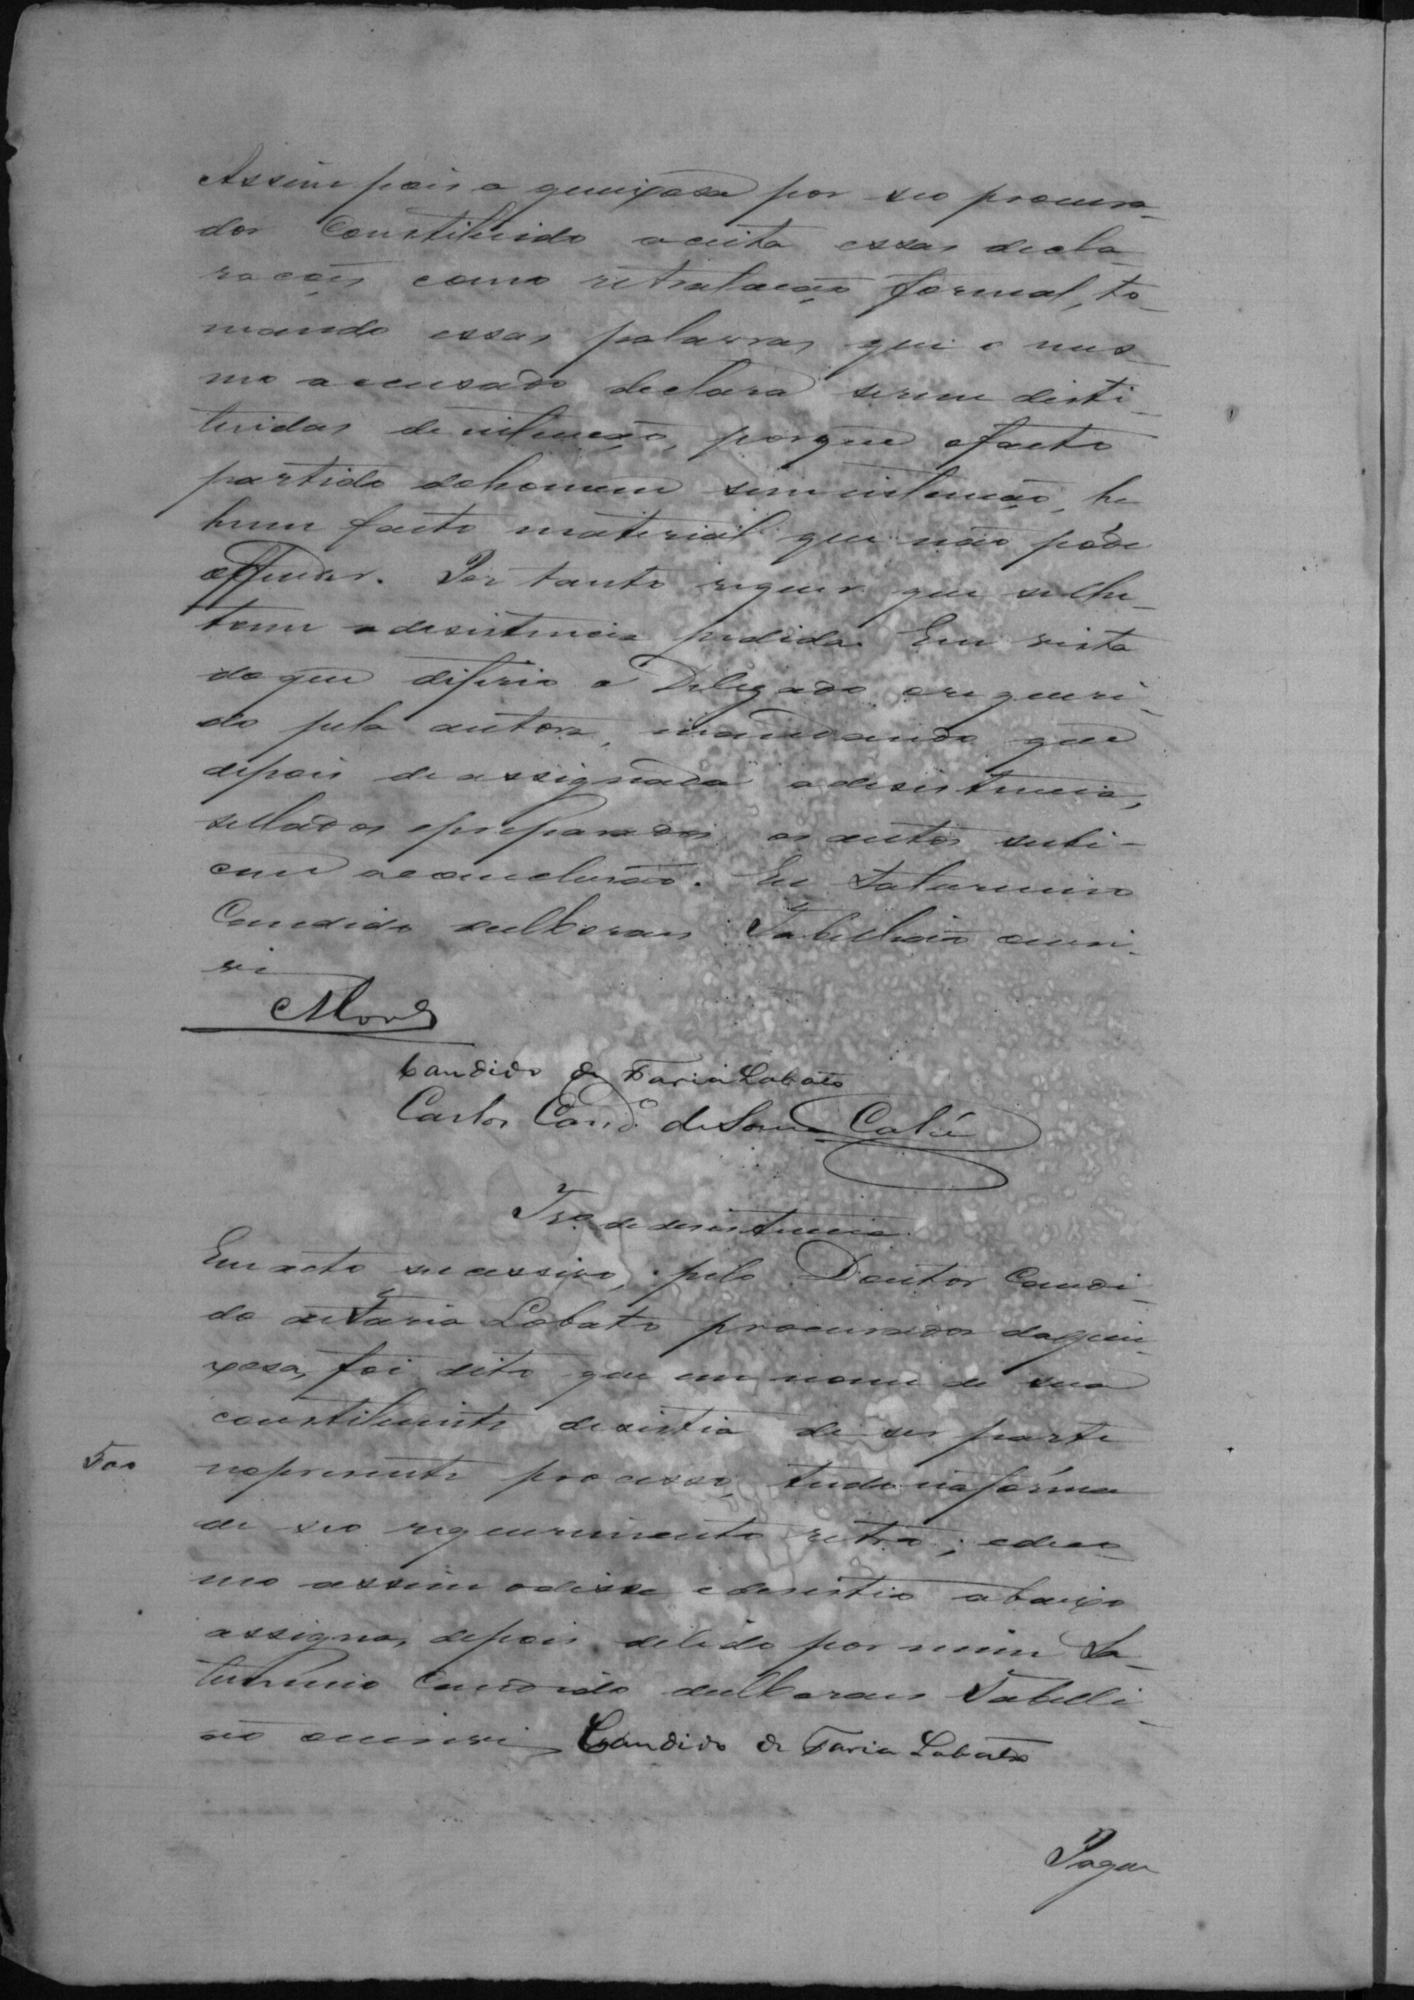 Assim pois a queixosa por seo procura-
dor Constituido aceita essas decla-
rações como retratação formal, to-
mando essas palavras que o mes-
mo accusado declara serem desti-
tuidas de intenção, porque o facto
partido do homem sem intenção, he
hum facto material que não póde
offender. Por tanto requer que se lhe
tome a desistencia pedida. Em vista
do que diferio o Delegado o requeri-
do pela autora, mandando que
depois de assignada a desistencia,
sellados e preparados os autos subi-
cem a conclusão. Eu Saturnino
Candido Tabellião escri-
vi
Candido de Faria Lobato
Carlos Cand.º de Sousa
Tr.º de desistencia
Em acto sucessivo, pelo Doutor Candi-
do de Faria Lobato procurador da quei-
xosa, foi dito que em nome de sua
constituinte desistia de ser parte
no presente processo, tudo na fórma
de seo requerimento retro; e de co-
mo assim o disse e desistio abaixo
assigna, depois de lido por mim Sa-
turnino Candido Tabelli-
ão escrevi Candido de Faria Lobato